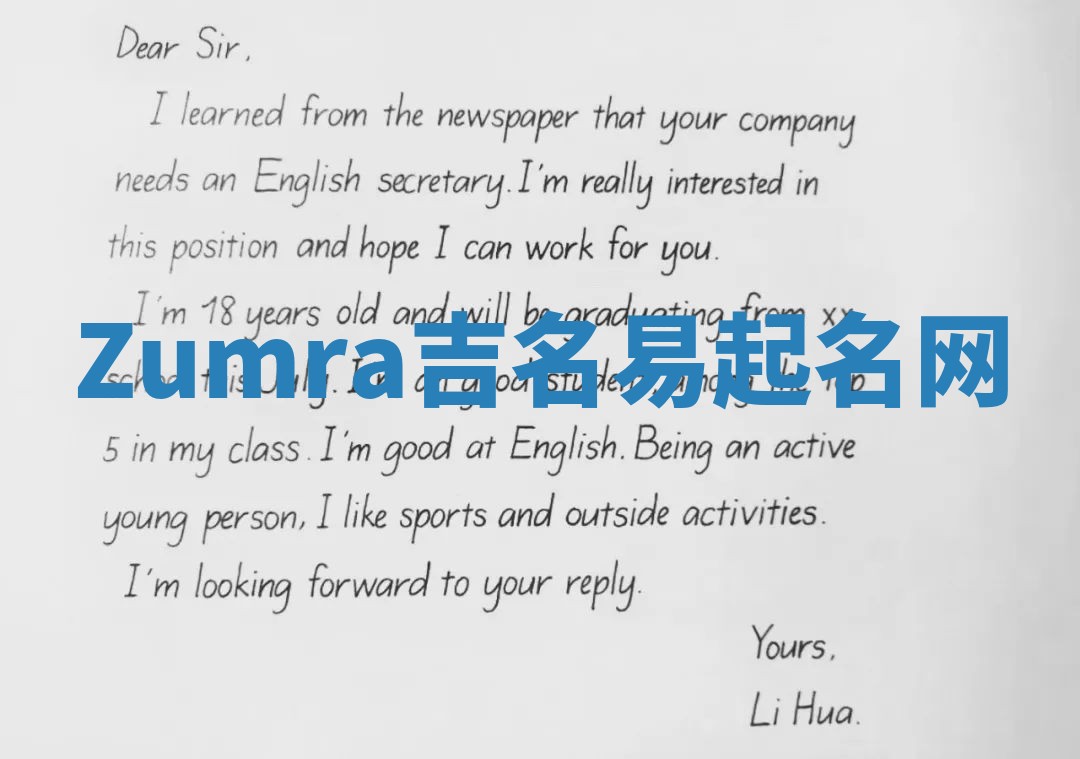 Dear Sir,
I learned from the newspaper that your company
needs an English secretary. I'm really interested in
this position and hope I can work for you.
I'm 18 years old and will be graduating from xx
Zumra吉名易起名网
school this July. I'm a good student, among the top
5 in my class. I'm good at English. Being an active
young person, I like sports and outside activities.
I'm looking forward to your reply.
Yours,
Li Hua.